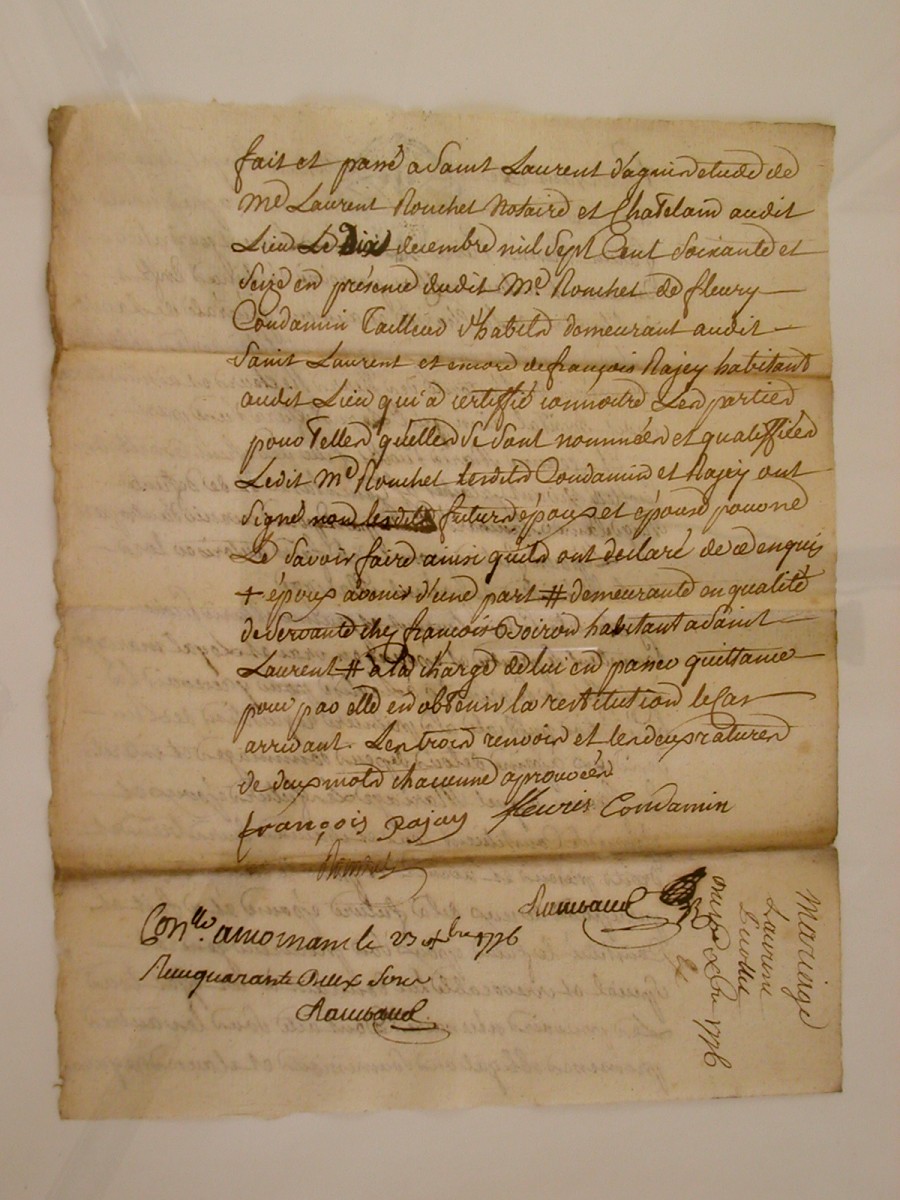 fait et passé a Saint Laurent d'agni etude de
Me Laurent Rouchet Notaire et Chatelain audit
Lieu Le Dix decembre mil Sept Cent Soixante et
Seize en présence dudit Me. Rouchet de fleury
Condamin Tailleur d'habits demeurant audit
Saint Laurent et encore de françois Rajey habitant
audit Lieu qui a certiffié connoitre Les parties
pour Telles quelles se sont nommées et qualiffiées
Ledit Me Rouchet Lesdits Condamin et Rajey ont
Signé non lesdits futurs époux et épouse pour ne
Le Savoir faire ainsi quils ont declaré de ce enquis
+ époux avenir d'une part # demeurante en qualité
de Servante chez françois Boiron habitant a Saint
Laurent # a la charge de lui en passer quittance
pour par elle en obtenir la restitution le Cas
arrivant. Les trois renvois et les deux ratures
de deux mots chacunne aprouvées
françois Rajay fleuris Condamin
Rambaud
Conllé. a mornant le 23 xbre 1776
Reçu quarante Deux Sous
Rambaud
Mariage
Laurent
xbre 1776